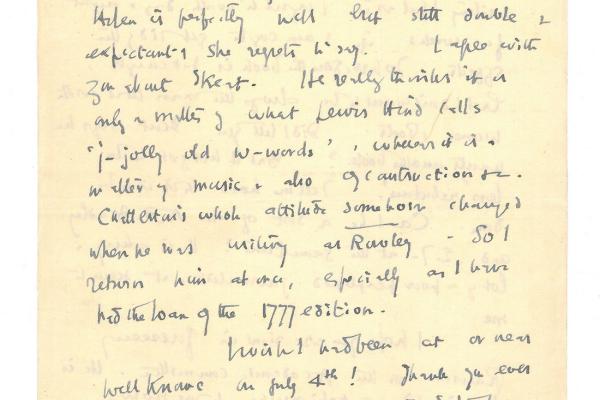 Helen is perfectly well but still double &
expectant & she regrets to say.. I agree with
you about Skeat. He really thinks it is
only a matter of what Lewis Hind calls
"j-jolly old w-words", whereas it is a
matter of music & also of construction &c.
Chatterton's whole attitude somehow changed
when he was writing as Rowley - So I
return him at once, especially as I have
had the loan of the 1777 edition.
I wish I had been at or near
Well Knowe on July 4th! Thank you ever